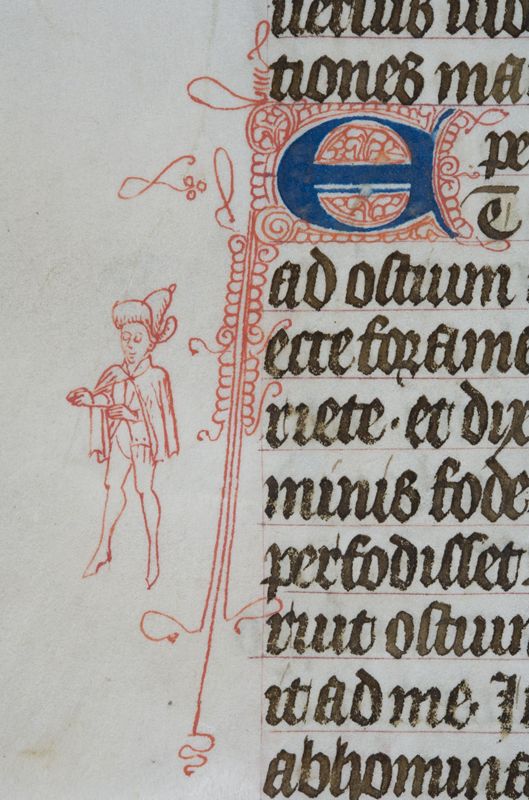 uersus uid
tiones ma
E pe
T
ad ostium
ecce forame
riete · et dix
minis fode
perfodisset
ruit ostium
it ad me I
abhomina